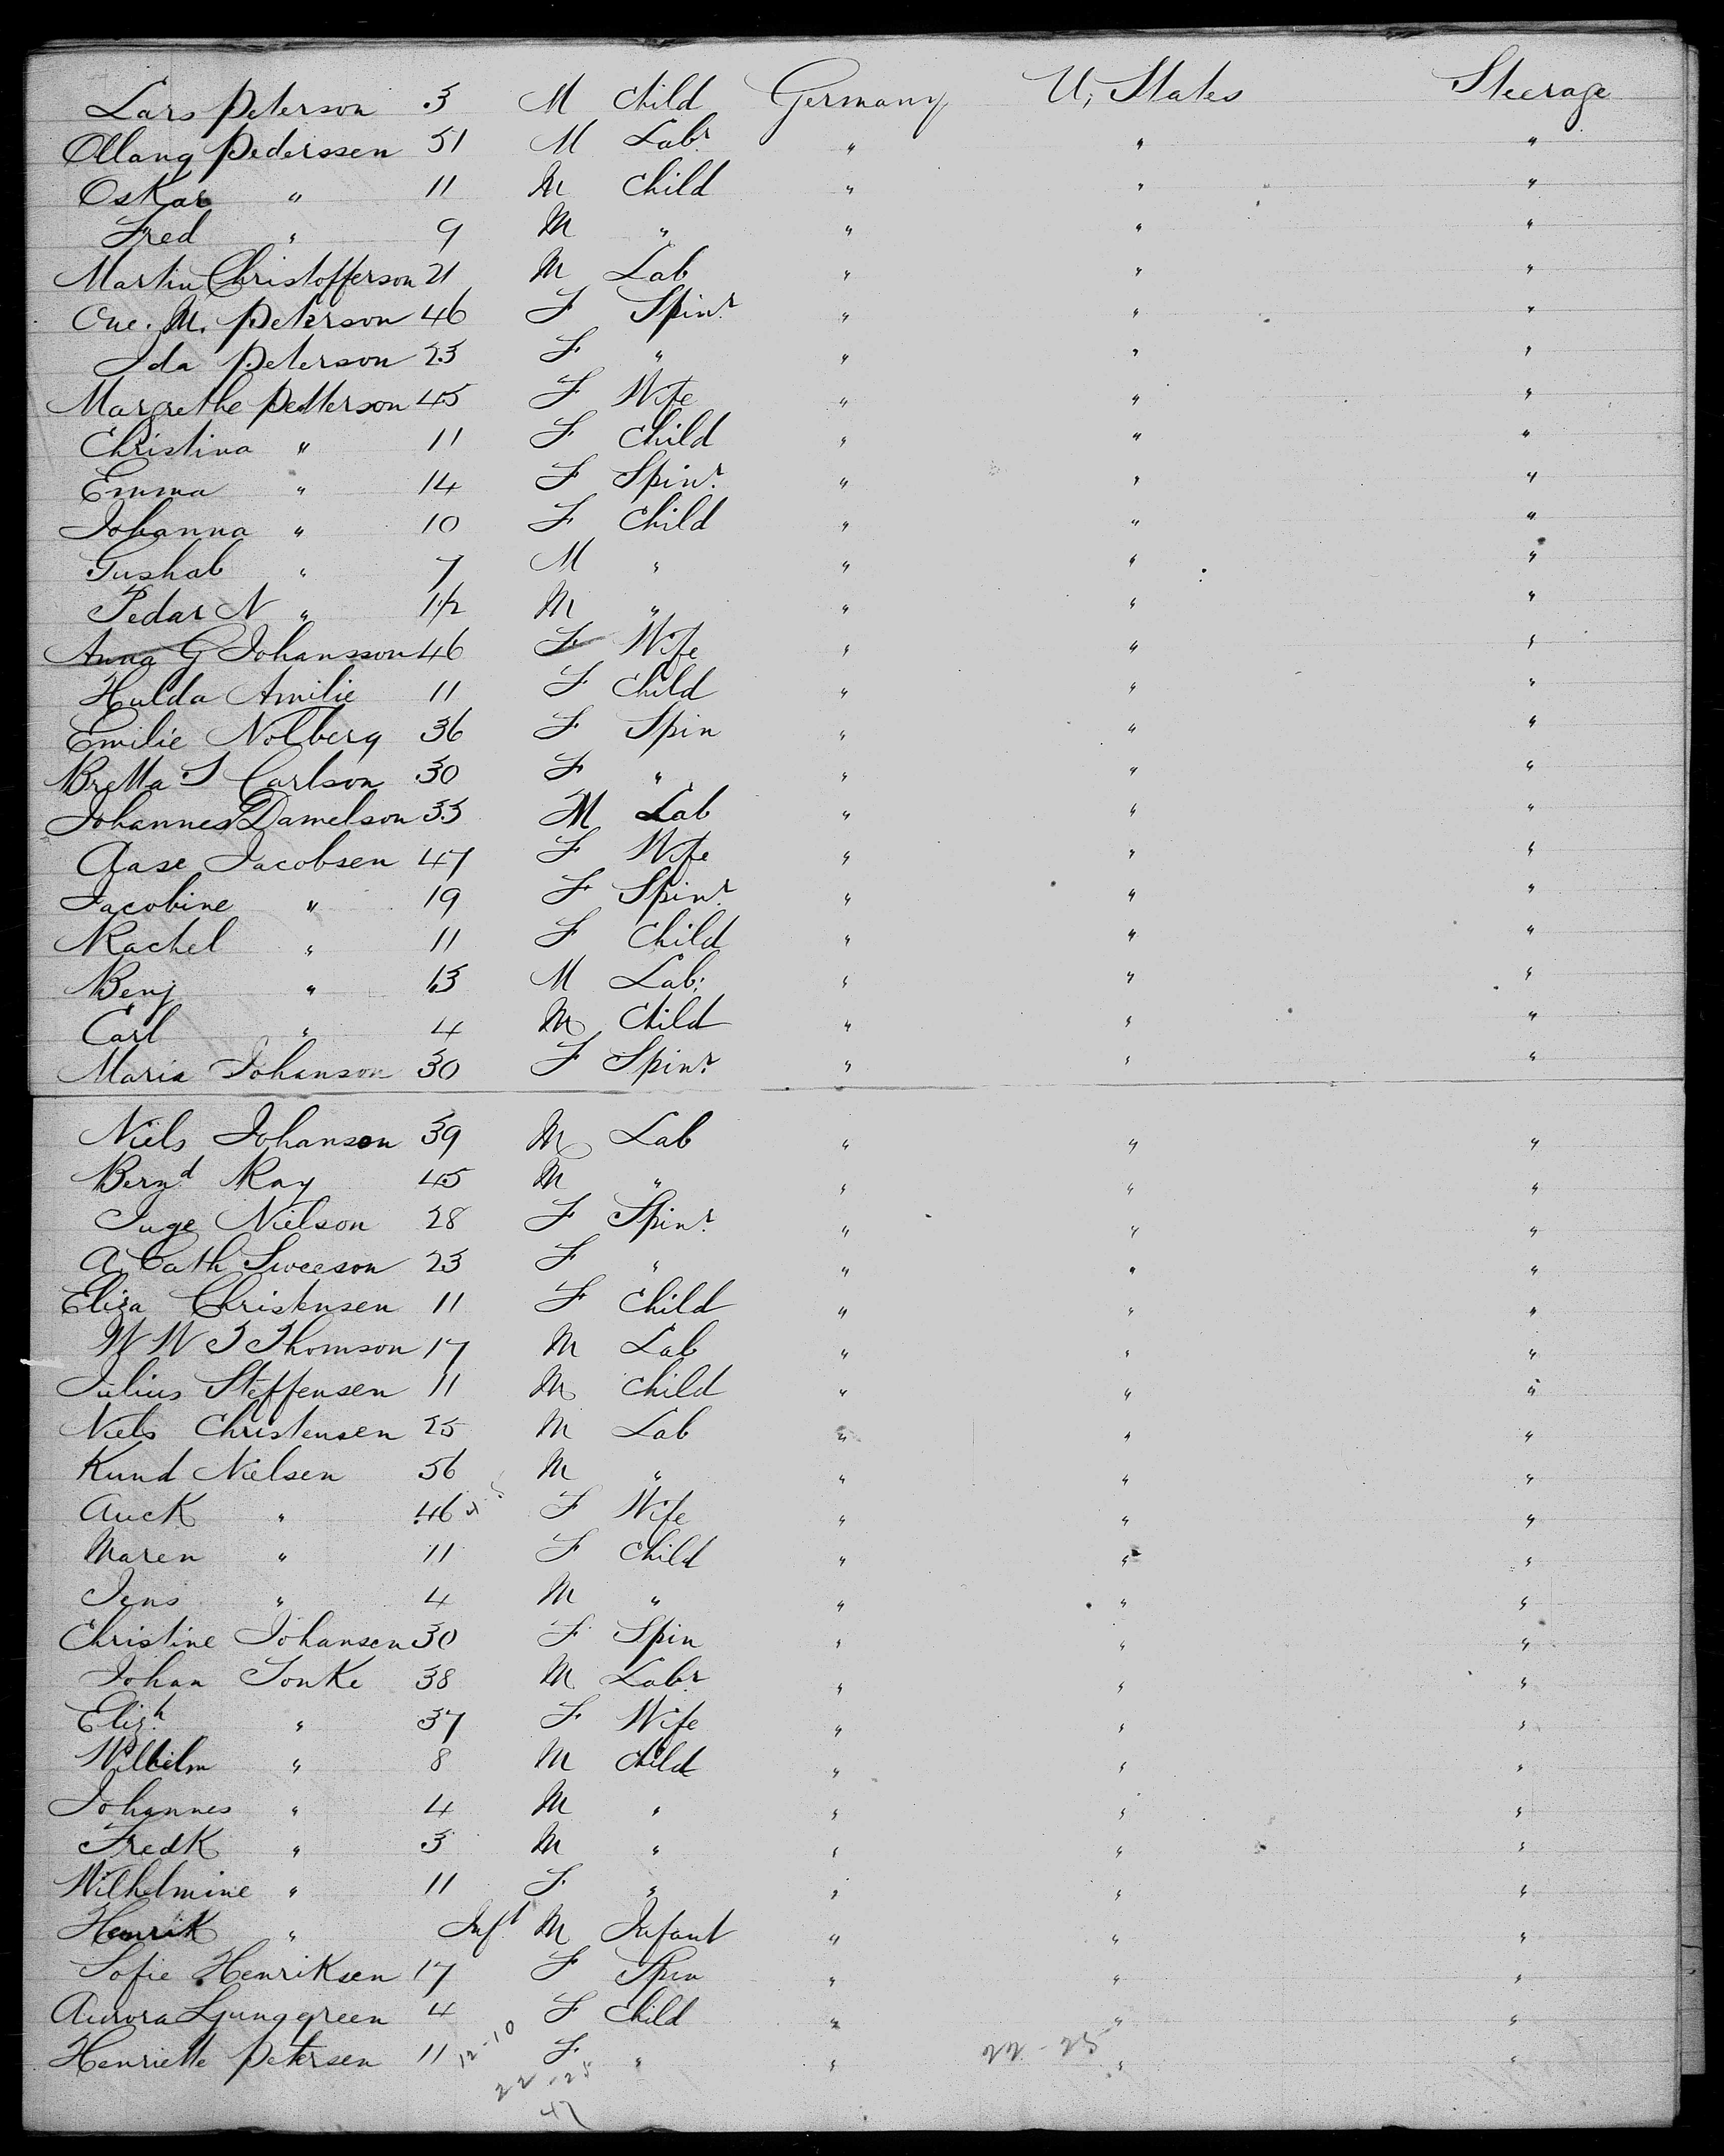 Lars Peterson 3 M Child Germany U, States Steerage
Ollang Pederssen 51 M Labr " " "
Oskar " 11 M Child " " "
Fred " 9 M " " " "
Martin Christofferson 21 M Lab " " "
One. M. Peterson 46 F Spinr " " "
Ida Peterson 23 F " " " "
Margrethe Petterson 45 F Wife " " "
Christina " 11 F Child " " "
Emma " 14 F Spinr " " "
Johanna " 10 F Child " " "
Gushab " 7 M " " " "
Pedar N " 1 1/2 M " " " "
Anna G Johansson 46 F Wife " " "
Hulda Amilie 11 F Child " " "
Emilie Nolberg 36 F Spin " " "
Bretta S Carlson 30 F " " " "
Johannes Damelson 33 M Lab " " "
Aase Jacobsen 47 F Wife " " "
Jacobine " 19 F Spinr " " "
Rachel " 11 F Child " " "
Benj " 13 M Lab: " " "
Carl " 4 M Child " " "
Maria Johanson 30 F Spinr " " "
Niels Johanson 39 M Lab " " "
Bernd Ray 45 M " " " "
Inge Nielson 28 F Spinr " " "
A. Cath Sweeson 23 F " " " "
Eliza Christensen 11 F Child " " "
W W T Thomson 17 M Lab " " "
Julius Steffensen 11 M Child " " "
Niels Christensen 25 M Lab " " "
Kund Nielsen 56 M " " " "
Auck " 46 F Wife " " "
Maren " 11 F Child " " "
Jens " 4 M " " " "
Christine Johansen 30 F Spin " " "
Johan Tonke 38 M Labr " " "
Elizh " 37 F Wife " " "
Wilhelm " 8 M Child " " "
Johannes " 4 M " " " "
Fredk " 3 M " " " "
Wilhelmine " 11 F " " " "
Henrik " Inft M Infant " " "
Sofie Henriksen 17 F Spin " " "
Aurora Ljunggreen 4 F Child " " "
Henriette Petersen 11 F " " " "
12-10
22-25
22-25
47